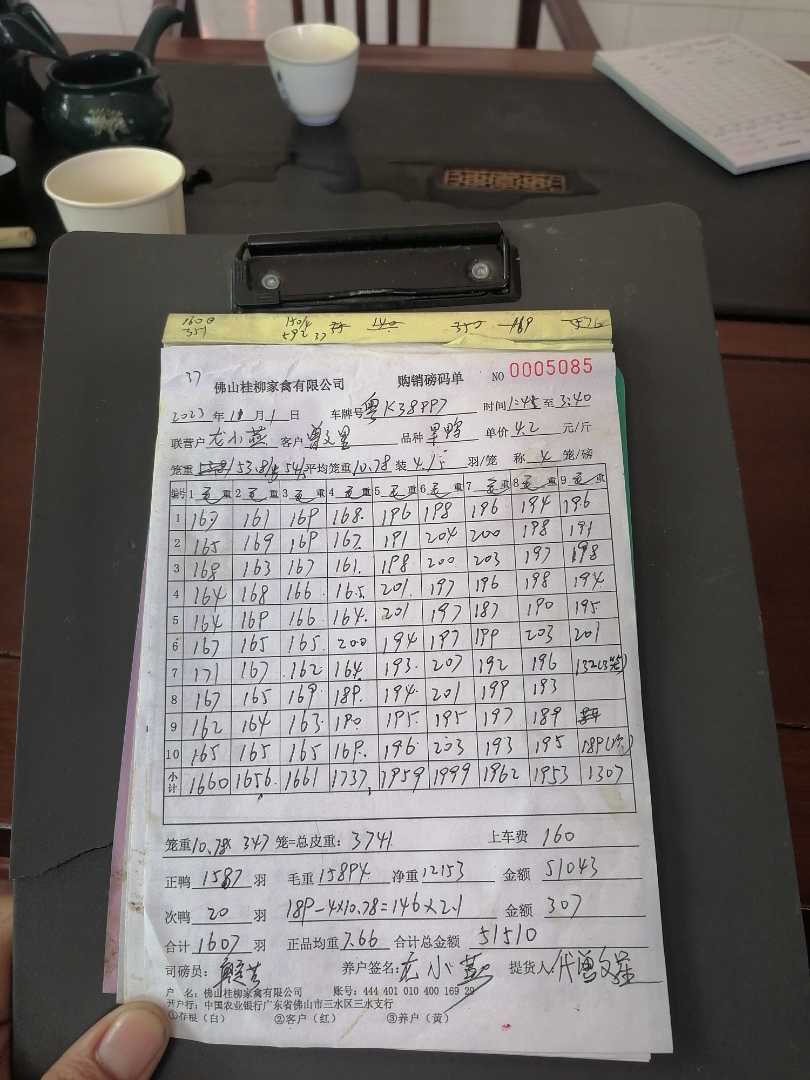 1600 351 150/4 592 37 140 350 169
37 佛山桂柳家禽有限公司 购销磅码单 NO 0005085
2023年11月1日 车牌号粤K38997 时间1:45至3:40
联营户 龙小燕 客户 曾文星 品种 旱鸭 单价4.2 元/斤
笼重 53.8/ 54/ 平均笼重10.78 装 4.15 羽/笼 称 4 笼/磅
编号 1 毛重 2 毛重 3 毛重 4 毛重 5 毛重 6 毛重 7 毛重 8 毛重 9 毛重
1 167 161 169 168 196 198 196 194 196
2 165 169 169 167 191 204 200 198 191
3 168 163 167 161 198 200 203 197 198
4 164 168 166 165 201 197 196 198 194
5 164 169 166 164 201 197 187 190 195
6 167 165 165 200 194 197 199 203 201
7 171 167 162 164 193 207 192 196 132(3笼)
8 167 165 169 189 194 201 199 193
9 162 164 163 190 195 195 197 189
10 165 165 165 169 196 203 193 195 189(4笼)
小计 1660 1656 1661 1737 1959 1999 1962 1953 1307
笼重10.78 347 笼=总皮重: 3741 上车费 160
正鸭 1587 羽 毛重15894 净重12153 金额 51043
次鸭 20 羽 189-4×10.78=146×2.1 金额 307
合计 1607 羽 正品均重7.66 合计总金额 51510
司磅员: 养户签名: 龙小燕 提货人: 代曾文星
户 名: 佛山桂柳家禽有限公司 账号: 444 401 010 400 169 29
开户行: 中国农业银行广东省佛山市三水区三水支行
①存根(白) ②客户(红) ③养户(黄)